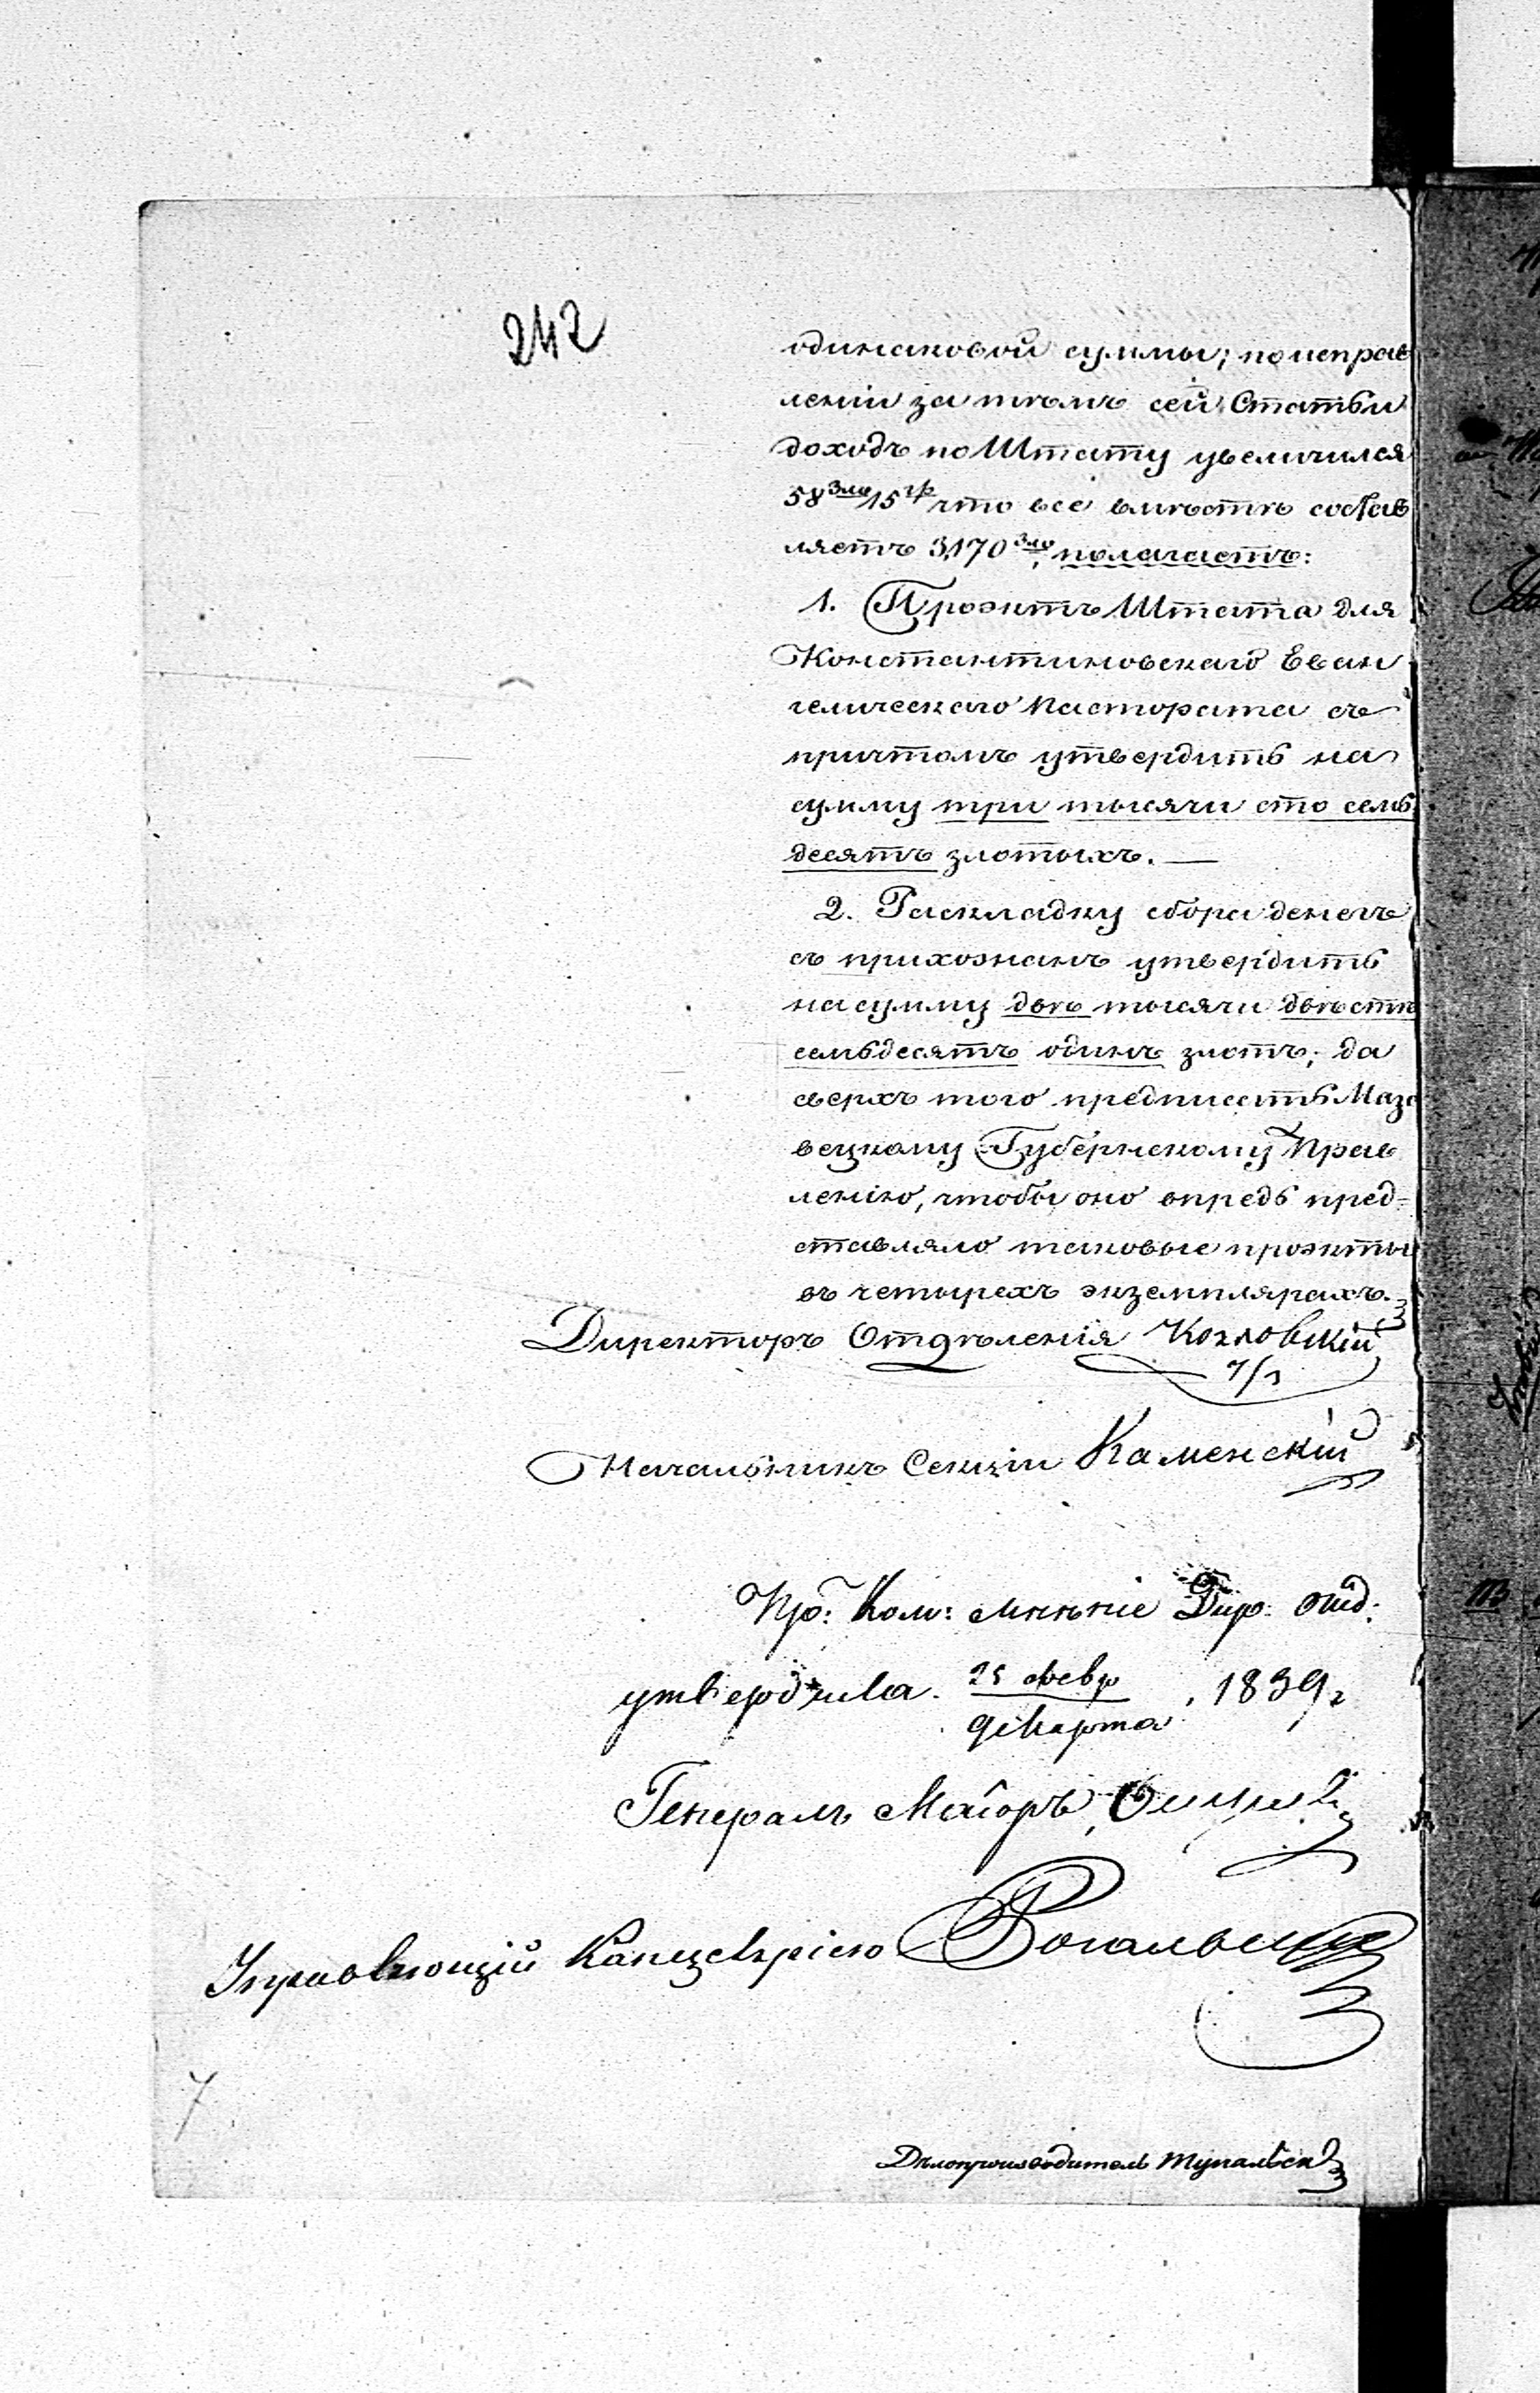 242
одинаковой суммы; по исправ
леніи за тѣмъ сей Статьи
доходъ по Штату увеличился
58 зло 15 гр что все вмѣстѣ состав
ляетъ 3,170 зло, полагаетъ:
1. Проэктъ Штата для
Константиновскаго Еван
гелическаго Пастората съ
причтомъ утвердить на
сумму три тысячи сто семь
десятъ злотыхъ. —
2. Раскладку сбора денегъ
съ прихожанъ утвердить
на сумму двѣ тысячи двѣсти
семьдесятъ одинъ злотъ; да
сверхъ того предписать Мазо
вецкому Губернскому Прав
ленію, чтобы оно впредь пред=
ставляло таковые проэкты
въ четырехъ экземплярахъ.
Директоръ Отдѣленія Козловскій
Начальникъ Секціи Каменскій
Пр: Ком: мнѣніе Дир: отд:
утвердила. 25 февр / 9 Марта, 1839 г
Генералъ Маіоръ,
Управляющій Канцеляріею Рогальскій
Дѣлопроизводитель Тупальск
7